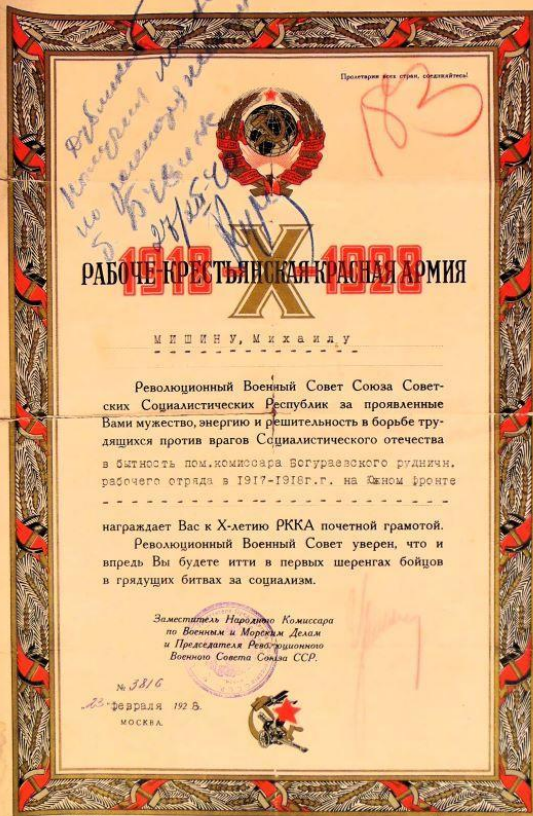 Пролетарии всех стран, соединяйтесь!
183
27/III-40
1918 X 1928
РАБОЧЕ-КРЕСТЬЯНСКАЯ КРАСНАЯ АРМИЯ
МИШИНУ, Михаилу
Революционный Военный Совет Союза Совет-
ских Социалистических Республик за проявленные
Вами мужество, энергию и решительность в борьбе тру-
дящихся против врагов Социалистического отечества
в бытность пом.комиссара Богураевского рудничн.
рабочего отряда в 1917-1918г.г. на Южном фронте
награждает Вас к X-летию РККА почетной грамотой.
Революционный Военный Совет уверен, что и
впредь Вы будете итти в первых шеренгах бойцов
в грядущих битвах за социализм.
Заместитель Народного Комиссара
по Военным и Морским Делам
и Председателя Революционного
Военного Совета Союза ССР.
№ 3816
23 февраля 1928.
МОСКВА.